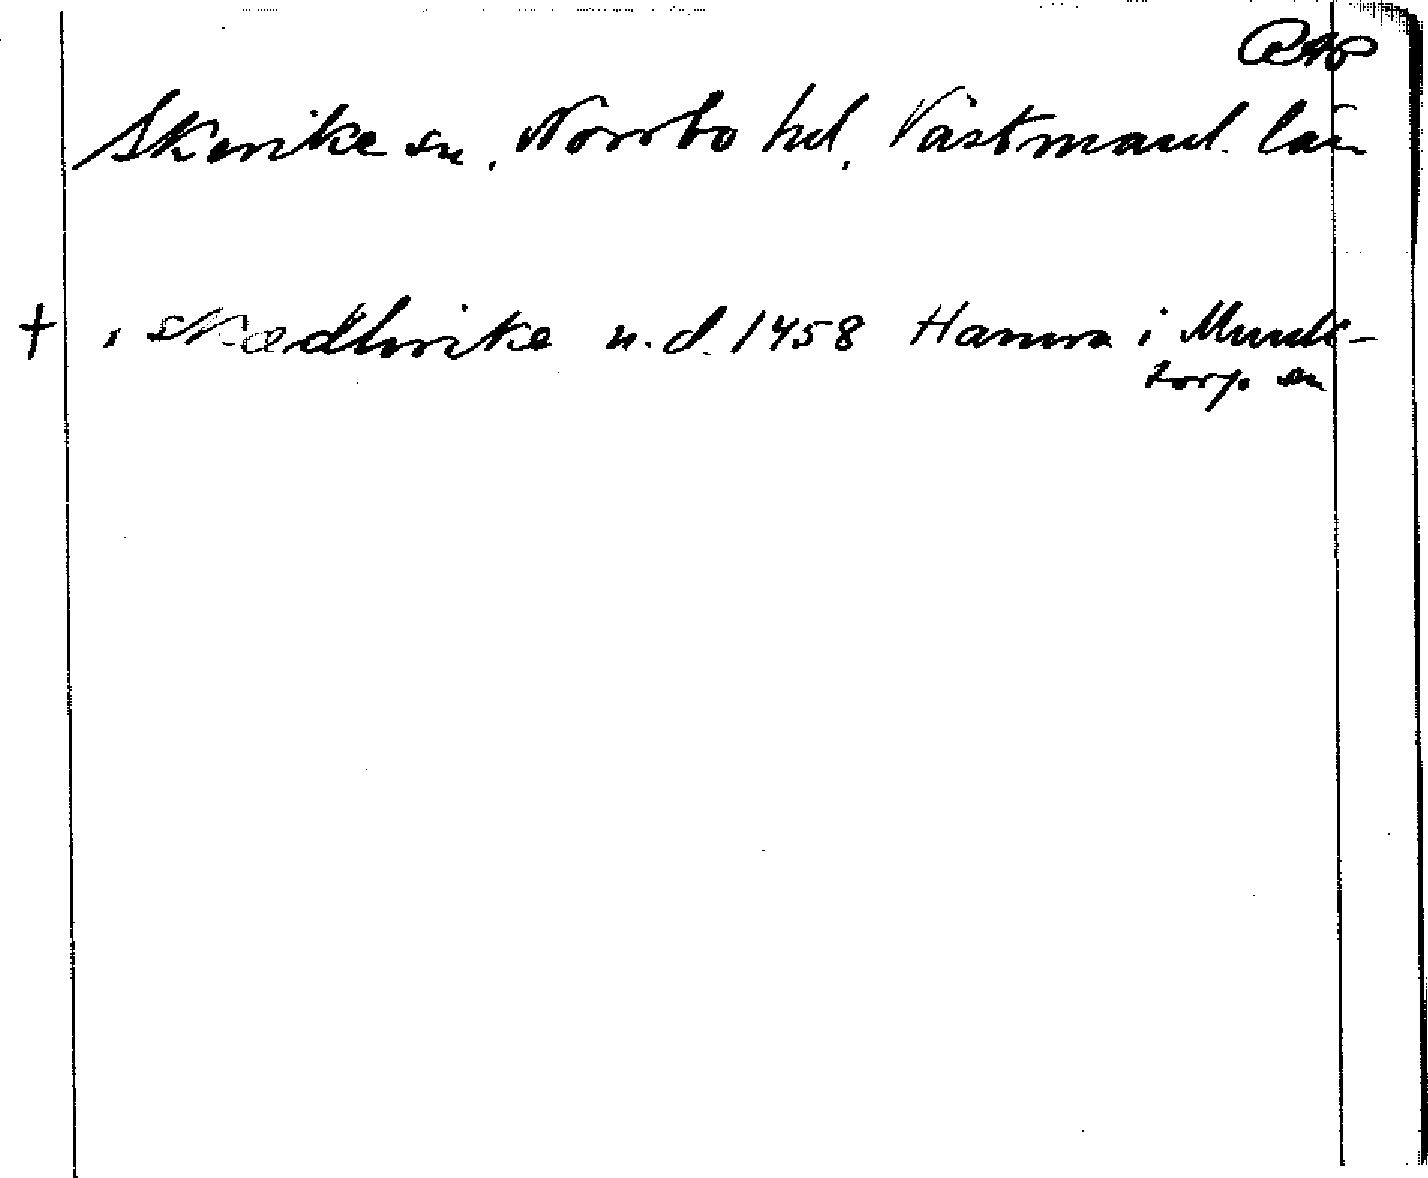 RAP
Skerike sn, Norrbo hd, Västmanl. län
† i Skædhrike n.d. 1458 Hamra i Munk-
torp sn